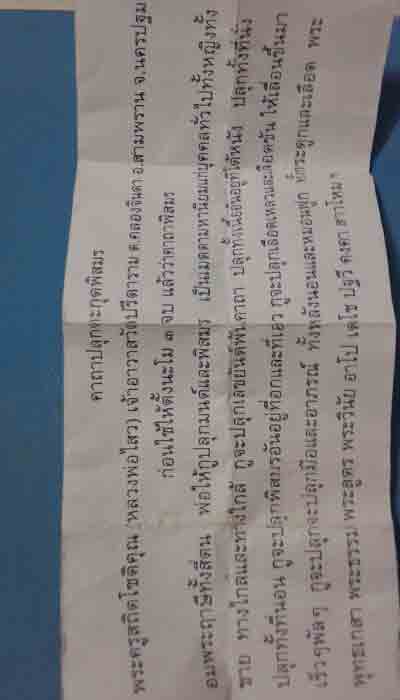 คาถาปลุกตะกุดพิสมร
พระครูสถิตโชติคุณ (หลวงพ่อไสว) เจ้าอาวาสวัดปรีดาราม ต.คลองจินดา อ.สามพราน จ.นครปฐม
ก่อนใช้ให้ตั้งนะโม ๓ จบ แล้วว่าคาถาพิสมร
อมพระฤาษีทั้งสี่ตน พ่อให้กูปลุกมนต์และพิสมร เป็นเมตตามหานิยมแก่บุคคลทั่วไปทั้งหญิงทั้ง
ชาย ทางไกลและทางใกล้ กูจะปลุกเลขยันต์พันคาถา ปลุกทั้งเนื้อจนอยู่ที่ใต้หนัง ปลุกทั้งที่นั่ง
ปลุกทั้งที่นอน กูจะปลุกพิสมรอันอยู่ที่อกและที่เอว กูจะปลุกเลือดเหลวและเลือดข้น ให้เลื่อนขึ้นมา
เร็วๆพลัน กูจะปลุกจะปลุกมือและอาภรณ์ ทั้งหลังนอนและหมอนฟูก ทั้งกระดูกและเลือด พระ
พุทธเกลา พระธรรม พระสูตร พระวินัย อาโป เตโช ปฐวี คงคา สาโหม ฯ